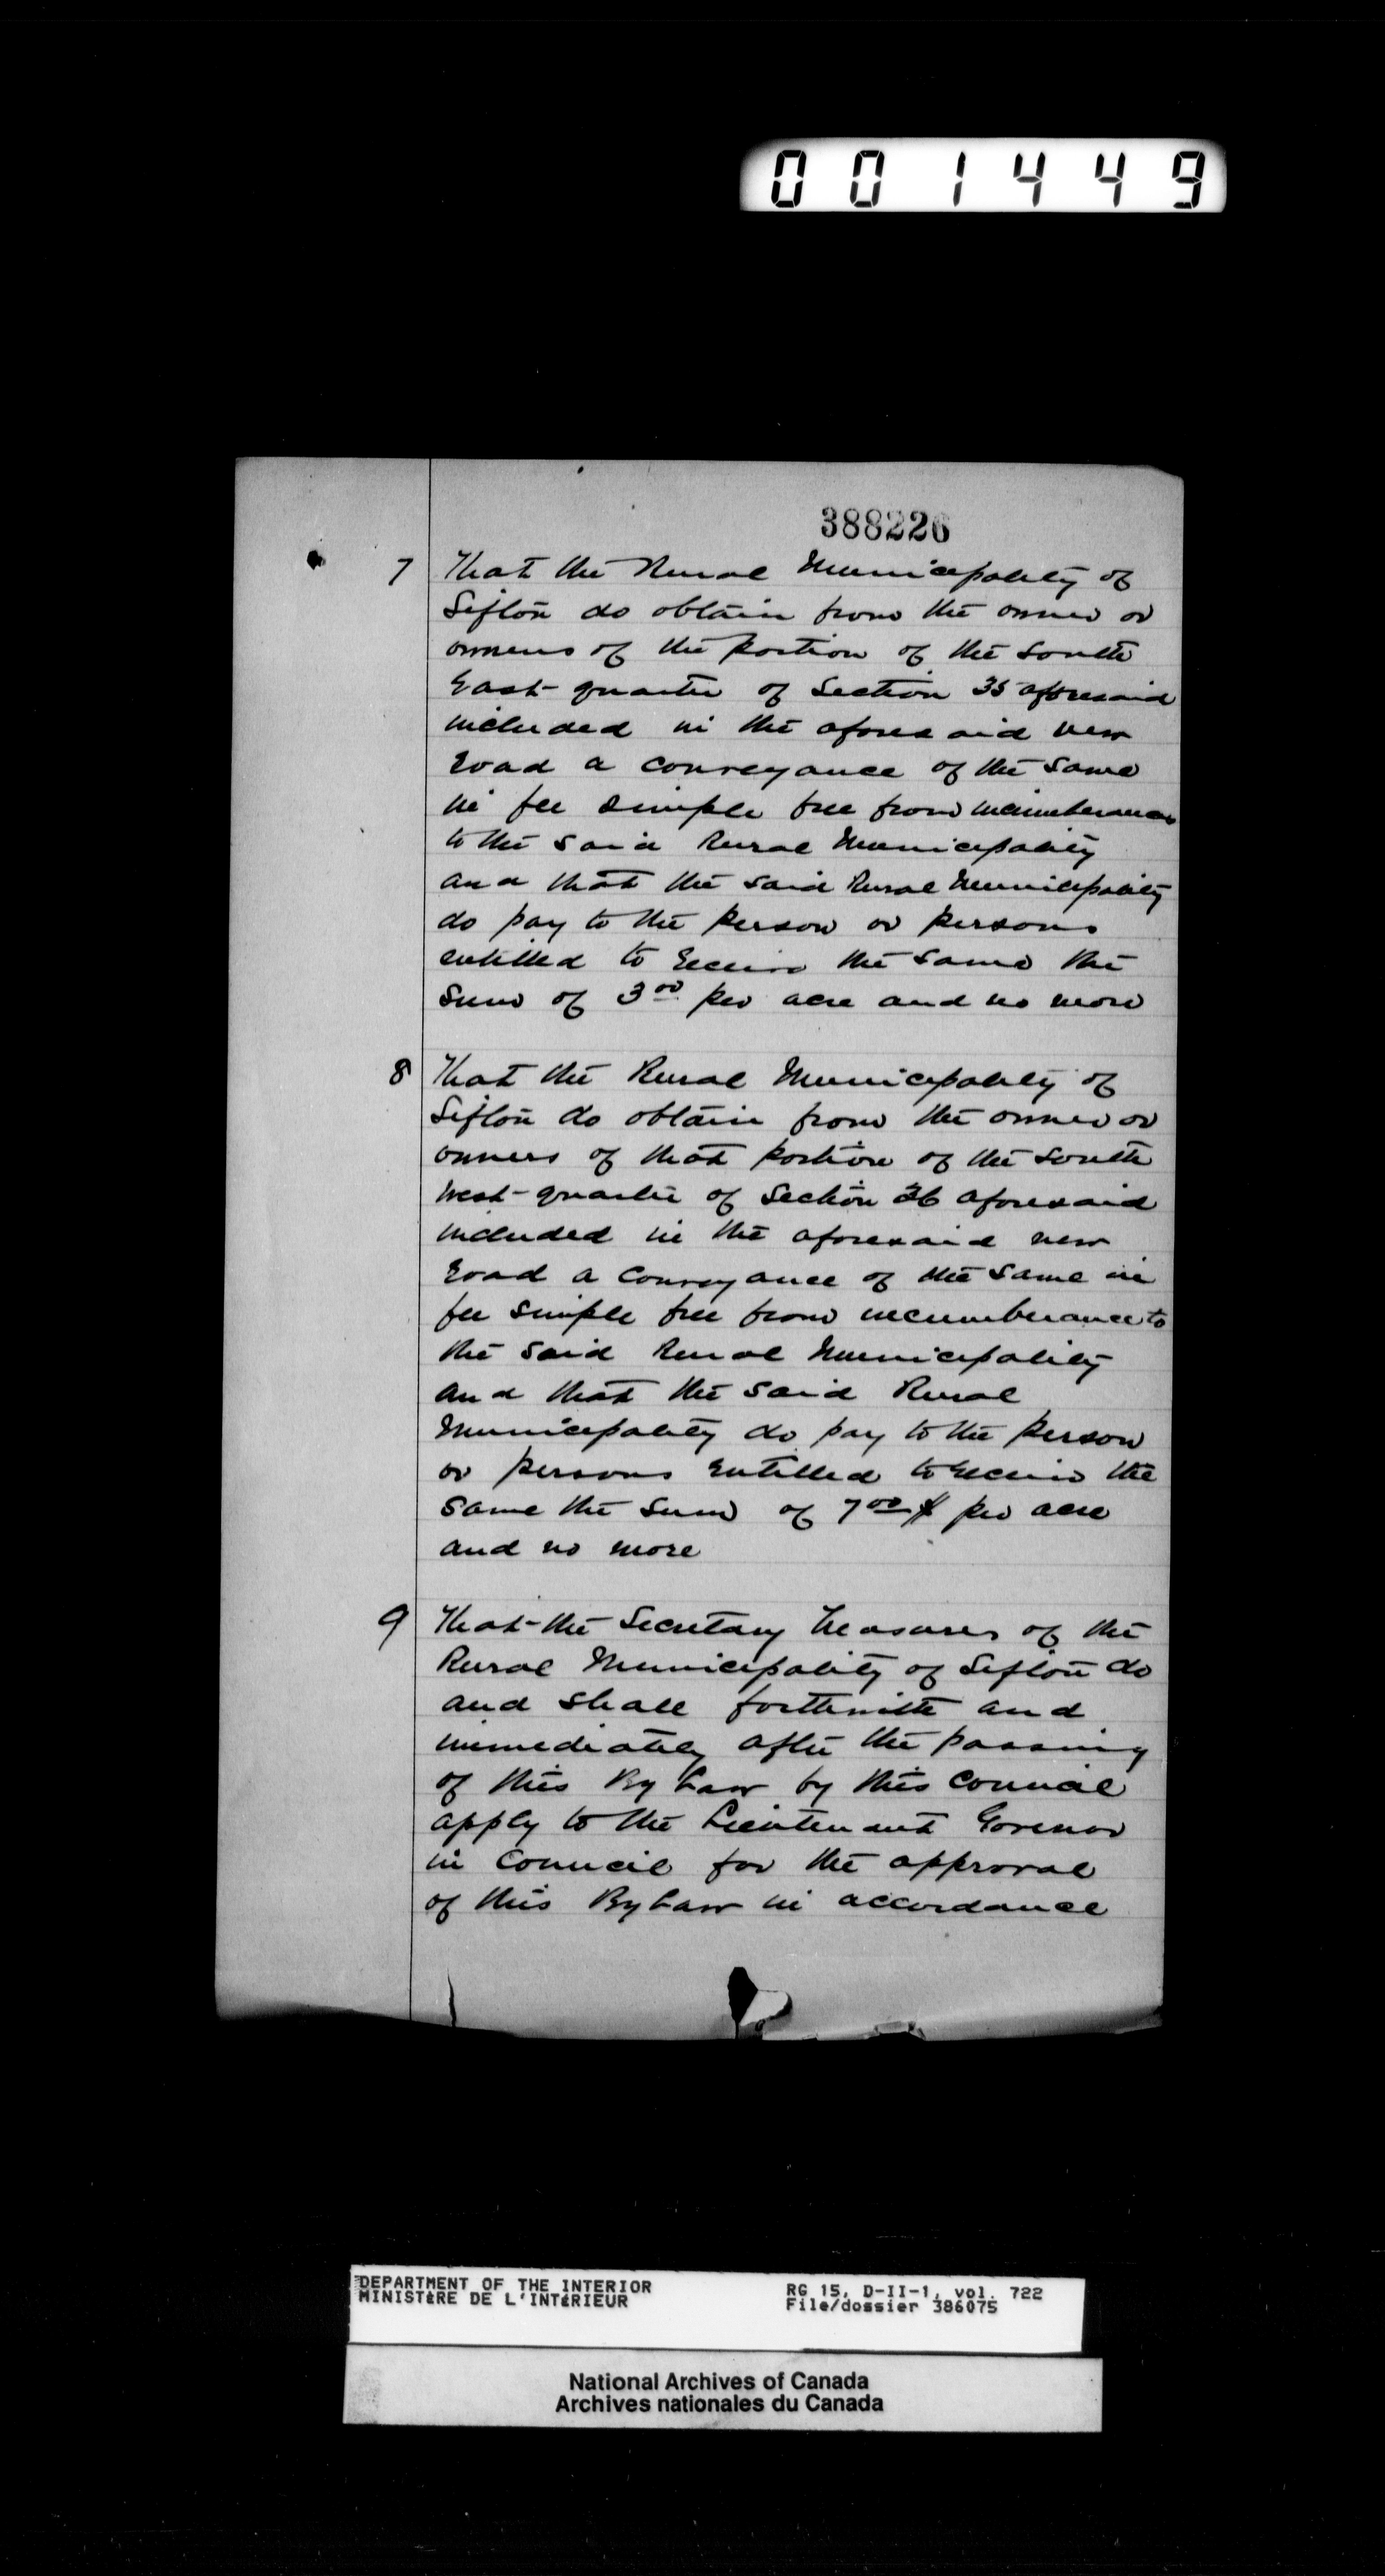 001449
388226
7 That the Rural Municipality of
Sifton do obtain from the owner or
owners of the portion of the South
East quarter of Section 35 aforesaid
included in the aforesaid new
road a conveyance of the same
in fee simple free from incumberances
to the said Rural Municipality
and that the said Rural Municipality
do pay to the person or persons
entitled to receive the same the
sum of 3 00 per acre and no more
8 That the Rural Municipality of
Sifton do obtain from the owner or
owners of that portion of the South
West quarter of Section 36 aforesaid
included in the aforesaid new
road a conveyance of the same in
fee simple free from incumberance to
the said Rural Municipality
and that the said Rural
Municipality do pay to the person
or persons entitled to receive the
same the sum of 7 00 $ per acre
and no more
9 That the Secretary Treasurer of the
Rural Municipality of Sifton do
and shall forthwith and
immediately after the passing
of this By Law by this Council
apply to the Lieutenant Govenor
in Council for the approval
of this By Law in accordance
DEPARTMENT OF THE INTERIOR RG 15, D-II-1, vol. 722
MINISTèRE DE L'INTéRIEUR File/dossier 386075
National Archives of Canada
Archives nationales du Canada